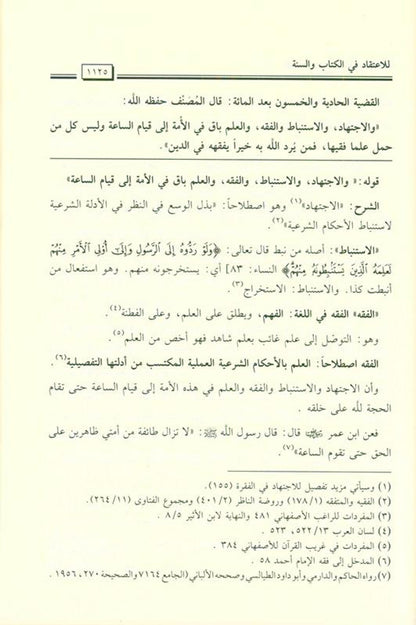 للاعتقاد في الكتاب والسنة
١١٢٥
القضية الحادية والخمسون بعد المائة: قال المُصنّف حفظه الله:
«والاجتهاد، والاستنباط والفقه، والعلم باق في الأمة إلى قيام الساعة وليس كل من
حمل علما فقيها، فمن يُرد الله به خيراً يفقهه في الدين».
قوله: «والاجتهاد، والاستنباط، والفقه، والعلم باق في الأمة إلى قيام الساعة»
الشرح: «الاجتهاد»(١) وهو اصطلاحاً: «بذل الوسع في النظر في الأدلة الشرعية
لاستنباط الأحكام الشرعية»(٢).
«الاستنباط»: أصله من نبط قال تعالى: ﴿وَلَوْ رَدُّوهُ إِلَى الرَّسُولِ وَإِلَى أُوْلِي الْأَمْرِ مِنْهُمْ
لَعَلِمَهُ الَّذِينَ يَسْتَنْبِطُونَهُ مِنْهُمْ﴾ [النساء: ٨٣] أي: يستخرجونه منهم. وهو استفعال من
أنبطت كذا. والاستنباط: الاستخراج(٣).
«الفقه» الفقه في اللغة: الفهم، ويطلق على العلم، وعلى الفطنة(٤).
وهو: التوصّل إلى علم غائب بعلم شاهد فهو أخص من العلم(٥).
الفقه اصطلاحاً: العلم بالأحكام الشرعية العملية المكتسب من أدلتها التفصيلية(٦).
وأن الاجتهاد والاستنباط والفقه والعلم في هذه الأمة إلى قيام الساعة حتى تقام
الحجة لله على خلقه .
فعن ابن عمر ﵁ قال: قال رسول الله ﷺ: «لا تزال طائفة من أمتي ظاهرين على
الحق حتى تقوم الساعة»(٧).
(١) وسيأتي مزيد تفصيل للاجتهاد في الفقرة (١٥٥).
(٢) الفقيه والمتفقه (١/ ١٧٨) وروضة الناظر (٢/ ٤٠١) ومجموع الفتاوى (١١/ ٢٦٤).
(٣) المفردات للراغب الأصفهاني ٤٨١ والنهاية لابن الأثير ٨/٥ .
(٤) لسان العرب ١٣/ ٥٢٢، ٥٢٣ .
(٥) المفردات في غريب القرآن للأصفهاني ٣٨٤ .
(٦) المدخل إلى فقه الإمام أحمد ٥٨ .
(٧) رواه الحاكم والدارمي وأبو داود الطيالسي وصححه الألباني (الجامع ٧١٦٤ والصحيحة ٢٧٠، ١٩٥٦ .